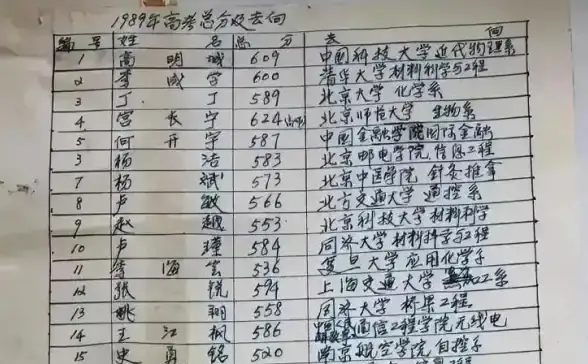 1989年高考总分及去向
编号 姓名 总分 去向
1 高明城 609 中国科技大学近代物理系
2 李威宇 600 清华大学材料科学与工程
3 丁丁 589 北京大学 化学系
4 宫长宁 624 北京师范大学 生物系
5 何开宇 587 中国金融学院国际金融
3 杨浩 583 北京邮电学院 信息工程
7 杨斌 573 北京中医学院 针灸推拿
8 卢敏 566 北方交通大学 通控系
9 赵越 553 北京科技大学材料科学
10 卢瑧 584 同济大学材料科学与工程
11 李海 536 复旦大学应用化学系
12 张锐 594 上海交通大学 工系
13 姚翔 558 同济大学 桥梁工程
14 王江枫 586 通信工程学院无线电
15 史勇铭 520 南京航空学院 自控系